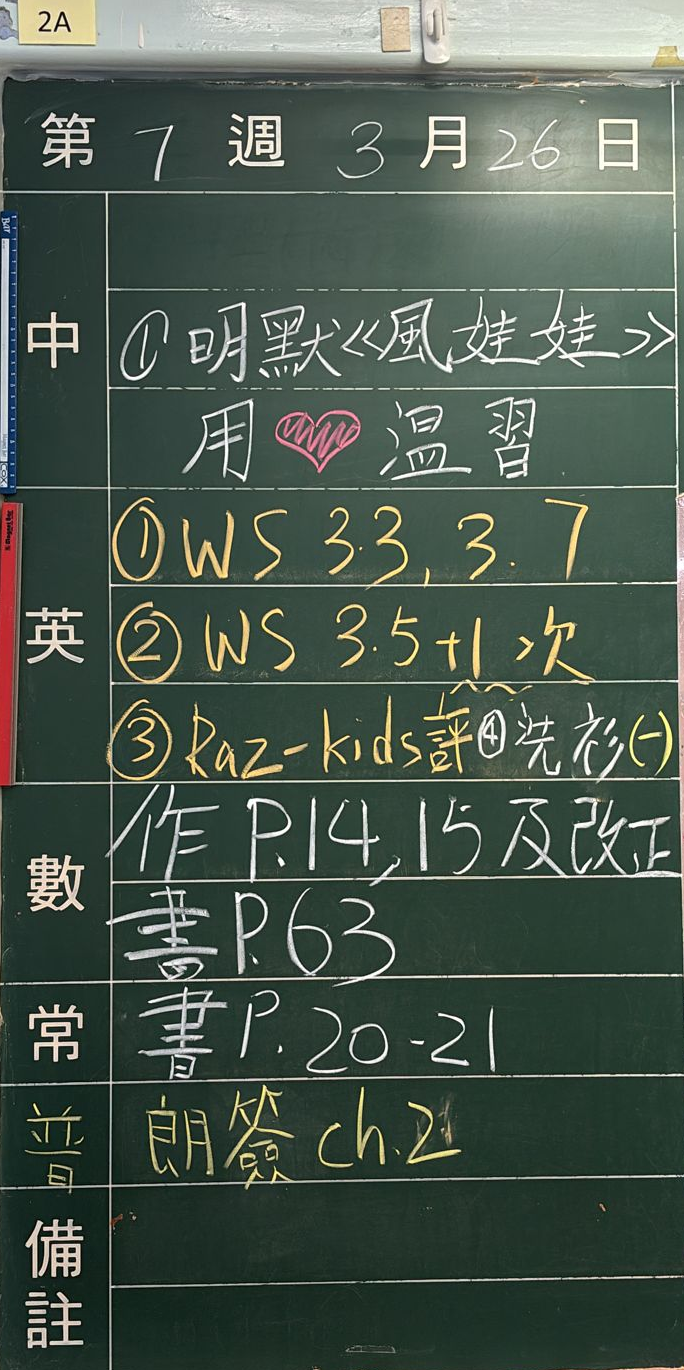 2A
第 7 週 3 月 26 日
中
① 明默《風娃娃》
用 ♥ 温習
英
① WS 3.3, 3.7
② WS 3.5 +1次
③ Raz-kids評 ④ 洗衫(一)
數
作 P.14, 15 及改正
書 P.63
常
書 P. 20-21
普
朗簽 ch.2
備註